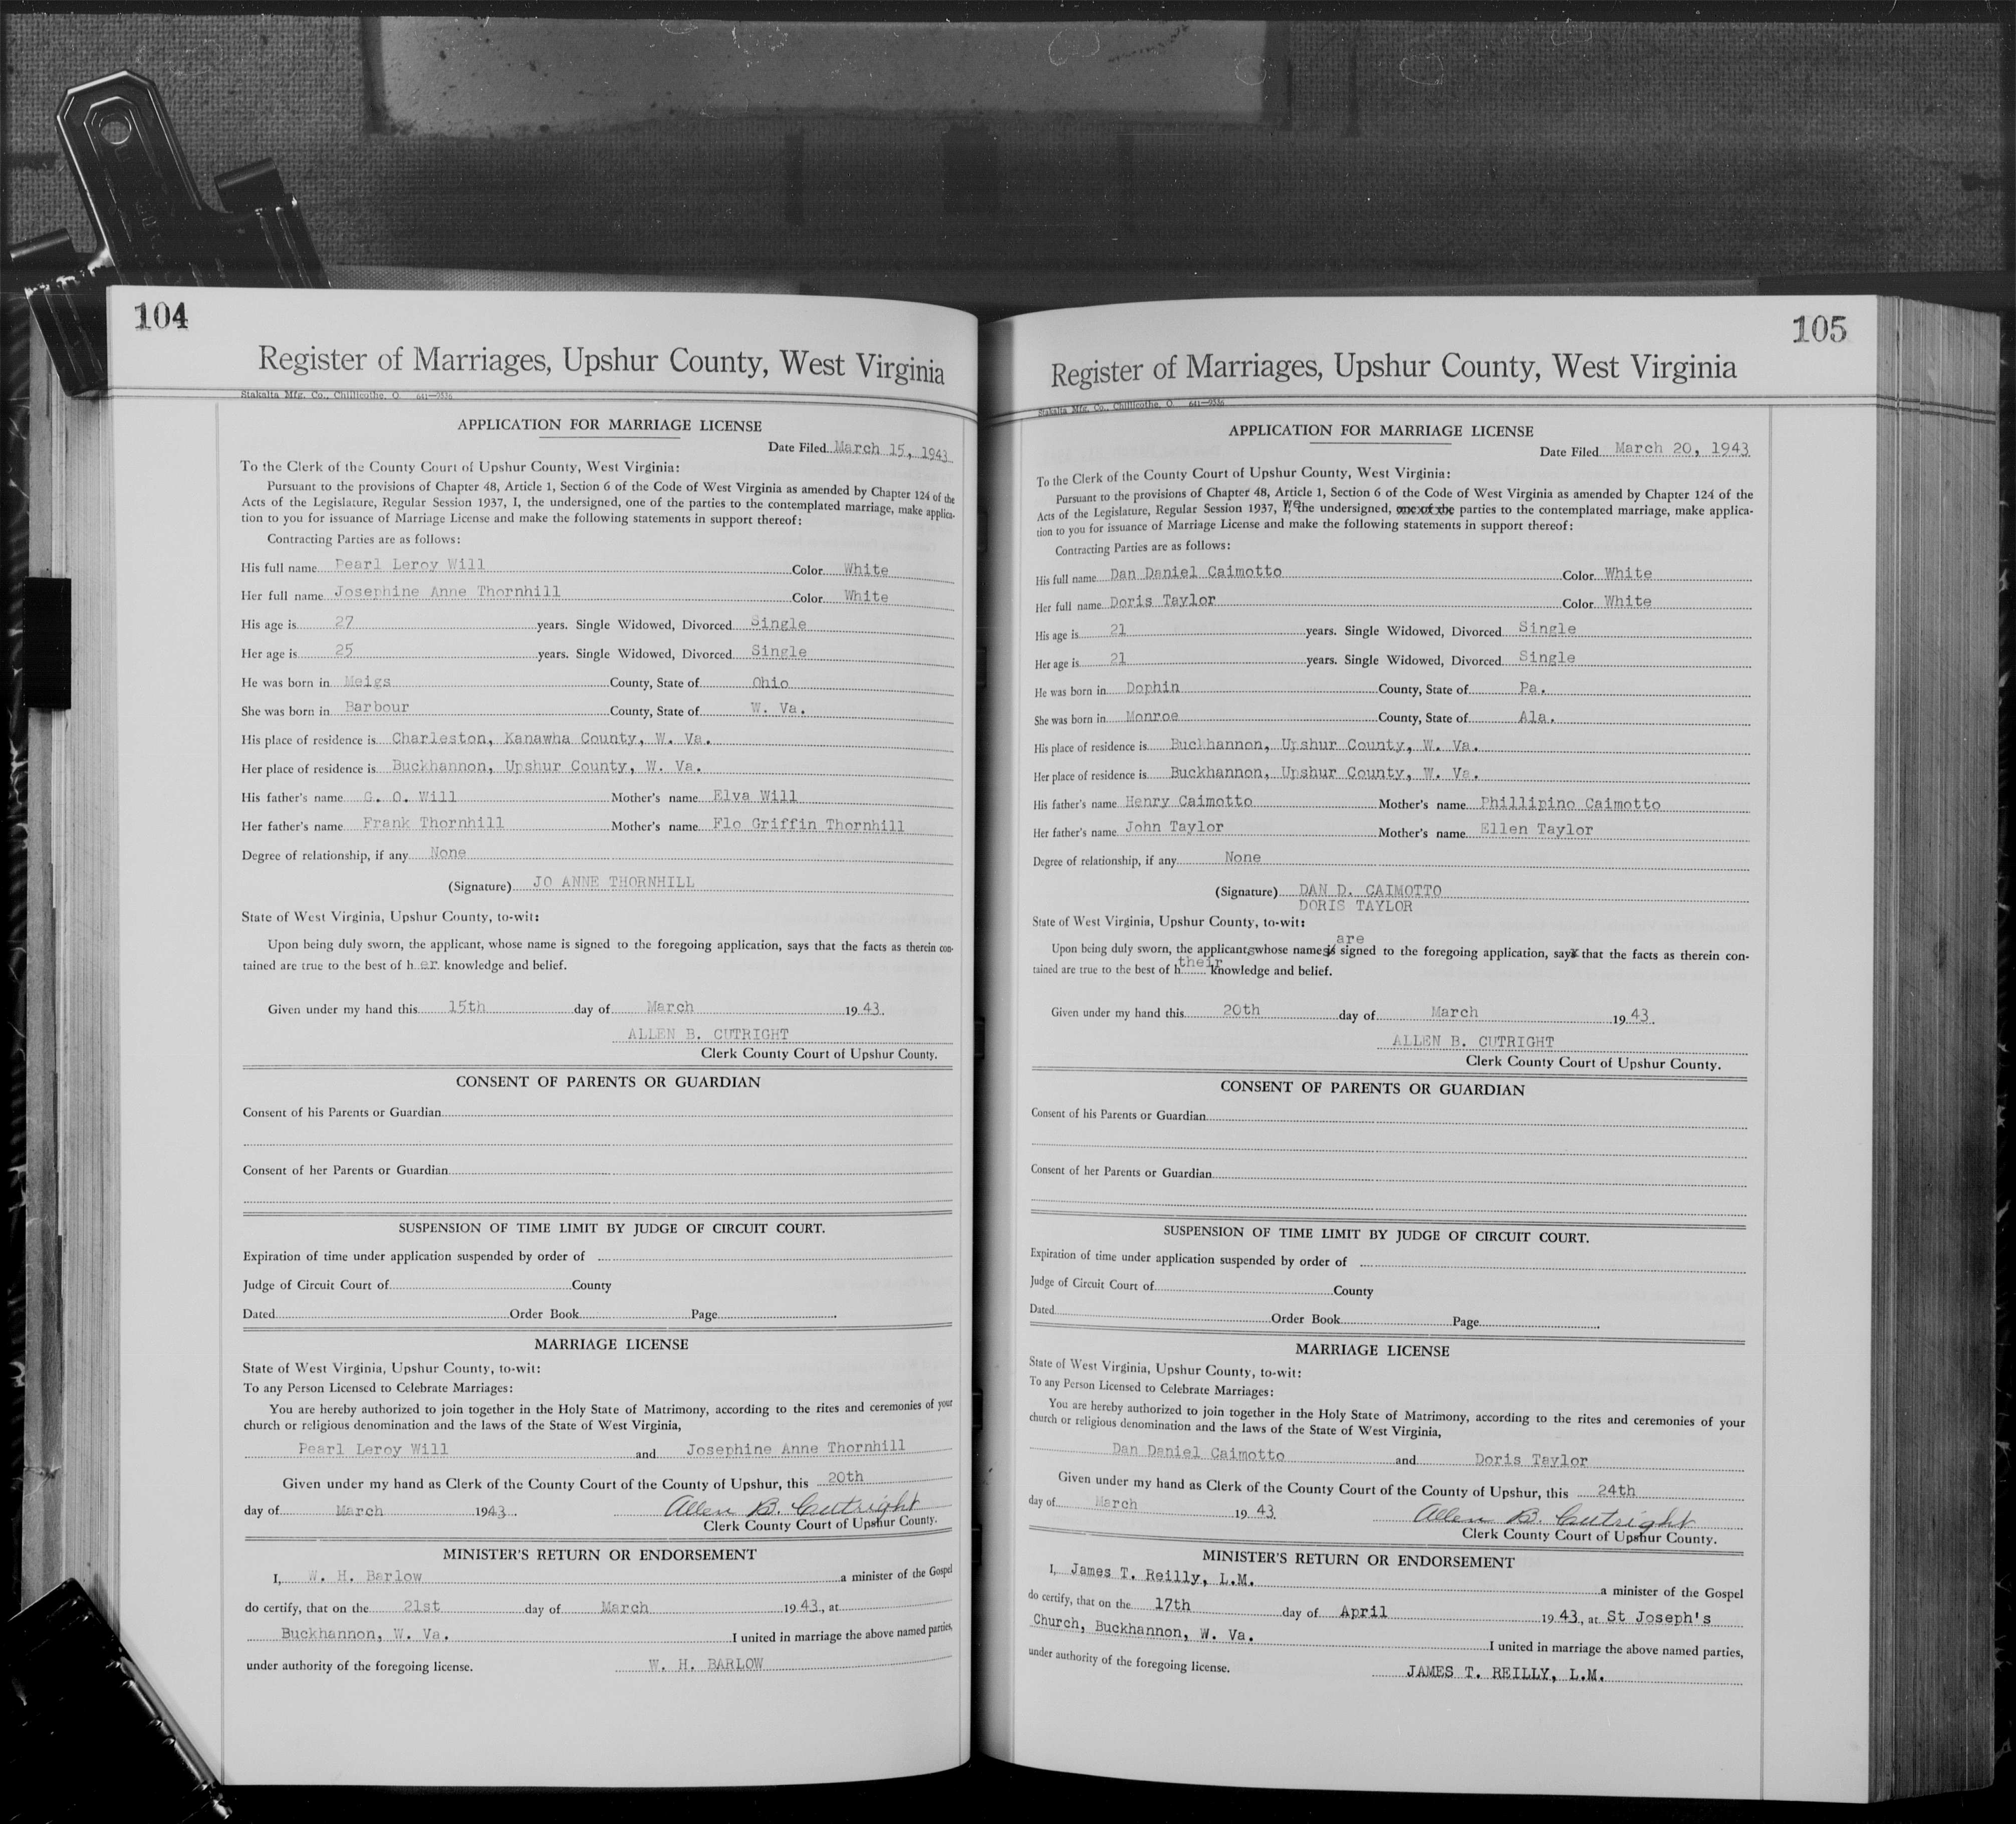 104
Register of Marriages, Upshur County, West Virginia
Stakalta Mfg. Co., Chillicothe, O 641—9536
APPLICATION FOR MARRIAGE LICENSE
Date Filed March 15, 1943
To the Clerk of the County Court of Upshur County, West Virginia:
Pursuant to the provisions of Chapter 48, Article 1, Section 6 of the Code of West Virginia as amended by Chapter 124 of the
Acts of the Legislature, Regular Session 1937, I, the undersigned, one of the parties to the contemplated marriage, make applica-
tion to you for issuance of Marriage License and make the following statements in support thereof:
Contracting Parties are as follows:
His full name Pearl Leroy Will Color White
Her full name Josephine Anne Thornhill Color White
His age is 27 years. Single Widowed, Divorced Single
Her age is 25 years. Single Widowed, Divorced Single
He was born in Meigs County, State of Ohio
She was born in Barbour County, State of W. Va.
His place of residence is Charleston, Kanawha County, W. Va.
Her place of residence is Buckhannon, Upshur County, W. Va.
His father's name G. O. Will Mother's name Elva Will
Her father's name Frank Thornhill Mother's name Flo Griffin Thornhill
Degree of relationship, if any None
(Signature) JO ANNE THORNHILL
State of West Virginia, Upshur County, to-wit:
Upon being duly sworn, the applicant, whose name is signed to the foregoing application, says that the facts as therein con-
tained are true to the best of her knowledge and belief.
Given under my hand this 15th day of March 1943.
ALLEN B. CUTRIGHT
Clerk County Court of Upshur County.
CONSENT OF PARENTS OR GUARDIAN
Consent of his Parents or Guardian
Consent of her Parents or Guardian
SUSPENSION OF TIME LIMIT BY JUDGE OF CIRCUIT COURT.
Expiration of time under application suspended by order of
Judge of Circuit Court of County
Dated Order Book Page
MARRIAGE LICENSE
State of West Virginia, Upshur County, to-wit:
To any Person Licensed to Celebrate Marriages:
You are hereby authorized to join together in the Holy State of Matrimony, according to the rites and ceremonies of your
church or religious denomination and the laws of the State of West Virginia,
Pearl Leroy Will and Josephine Anne Thornhill
Given under my hand as Clerk of the County Court of the County of Upshur, this 20th
day of March 1943. Allen B. Cutright
Clerk County Court of Upshur County.
MINISTER'S RETURN OR ENDORSEMENT
I, W. H. Barlow a minister of the Gospel
do certify, that on the 21st day of March 1943, at
Buckhannon, W. Va. I united in marriage the above named parties,
under authority of the foregoing license. W. H. BARLOW
105
Register of Marriages, Upshur County, West Virginia
Stakalta Mfg. Co., Chillicothe, O 641—9536
APPLICATION FOR MARRIAGE LICENSE
Date Filed March 20, 1943
To the Clerk of the County Court of Upshur County, West Virginia:
Pursuant to the provisions of Chapter 48, Article 1, Section 6 of the Code of West Virginia as amended by Chapter 124 of the
Acts of the Legislature, Regular Session 1937, I, we the undersigned, one of the parties to the contemplated marriage, make applica-
tion to you for issuance of Marriage License and make the following statements in support thereof:
Contracting Parties are as follows:
His full name Dan Daniel Caimotto Color White
Her full name Doris Taylor Color White
His age is 21 years. Single Widowed, Divorced Single
Her age is 21 years. Single Widowed, Divorced Single
He was born in Dophin County, State of Pa.
She was born in Monroe County, State of Ala.
His place of residence is Buckhannon, Upshur County, W. Va.
Her place of residence is Buckhannon, Upshur County, W. Va.
His father's name Henry Caimotto Mother's name Phillipino Caimotto
Her father's name John Taylor Mother's name Ellen Taylor
Degree of relationship, if any None
(Signature) DAN D. CAIMOTTO
DORIS TAYLOR
State of West Virginia, Upshur County, to-wit:
are
Upon being duly sworn, the applicants whose names is signed to the foregoing application, says that the facts as therein con-
tained are true to the best of h their knowledge and belief.
Given under my hand this 20th day of March 1943.
ALLEN B. CUTRIGHT
Clerk County Court of Upshur County.
CONSENT OF PARENTS OR GUARDIAN
Consent of his Parents or Guardian
Consent of her Parents or Guardian
SUSPENSION OF TIME LIMIT BY JUDGE OF CIRCUIT COURT.
Expiration of time under application suspended by order of
Judge of Circuit Court of County
Dated Order Book Page
MARRIAGE LICENSE
State of West Virginia, Upshur County, to-wit:
To any Person Licensed to Celebrate Marriages:
You are hereby authorized to join together in the Holy State of Matrimony, according to the rites and ceremonies of your
church or religious denomination and the laws of the State of West Virginia,
Dan Daniel Caimotto and Doris Taylor
Given under my hand as Clerk of the County Court of the County of Upshur, this 24th
day of March 1943. Allen B. Cutright
Clerk County Court of Upshur County.
MINISTER'S RETURN OR ENDORSEMENT
I, James T. Reilly, L.M. a minister of the Gospel
do certify, that on the 17th day of April 1943, at St Joseph's
Church, Buckhannon, W. Va. I united in marriage the above named parties,
under authority of the foregoing license. JAMES T. REILLY, L.M.